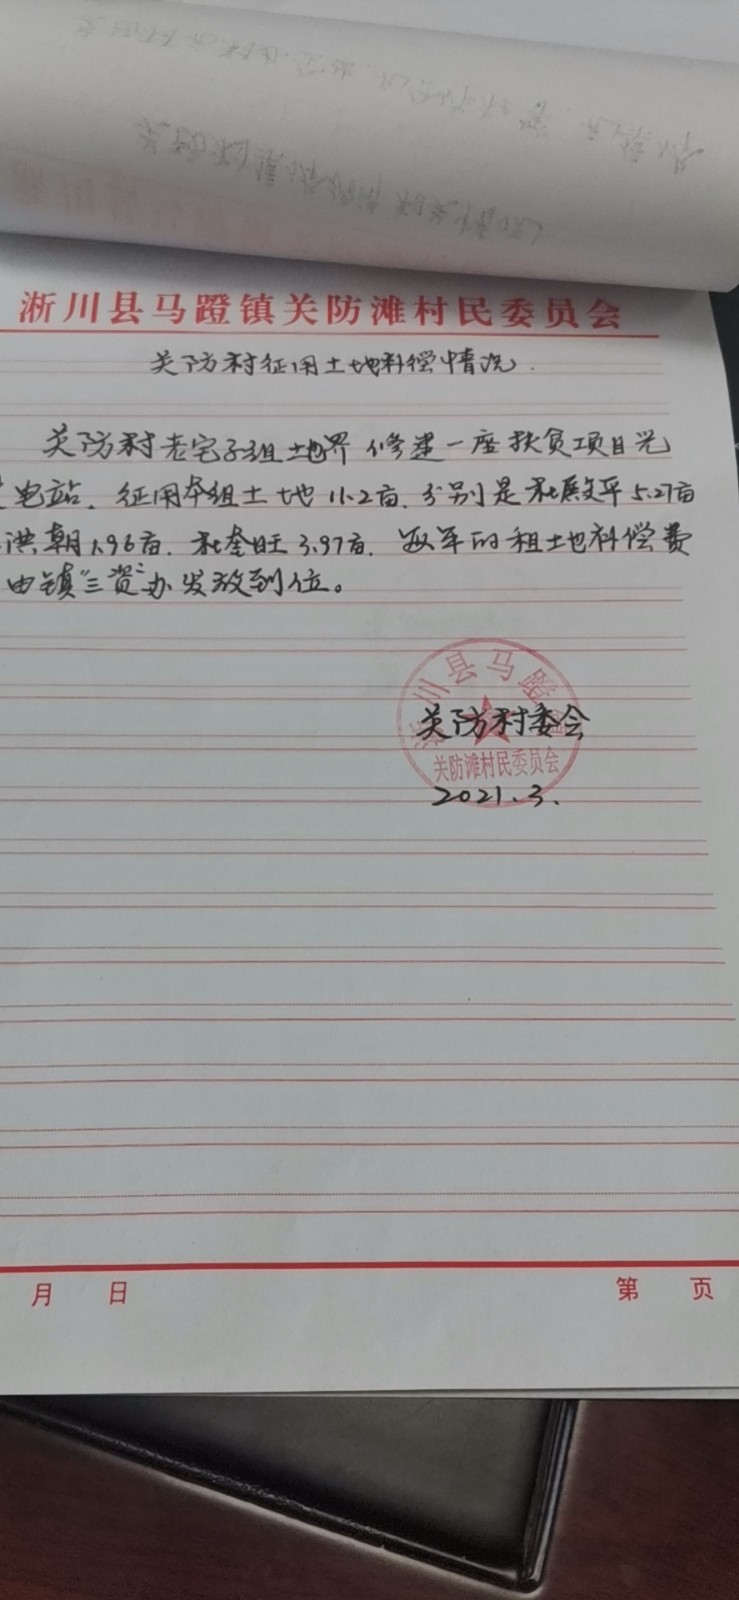 淅川县马蹬镇关防滩村民委员会
关防村征用土地补偿情况.
关防村老宅子组土地界修建一座扶贫项目光
电站.征用本组土地11.2亩.分别是杜殿平5.27亩
洪朝1.96亩.杜奎旺3.97亩.每年的租地补偿费
由镇"三资"办发放到位。
淅川县马蹬镇
关防村委会
关防滩村民委员会
2021.3.
月 日 第 页